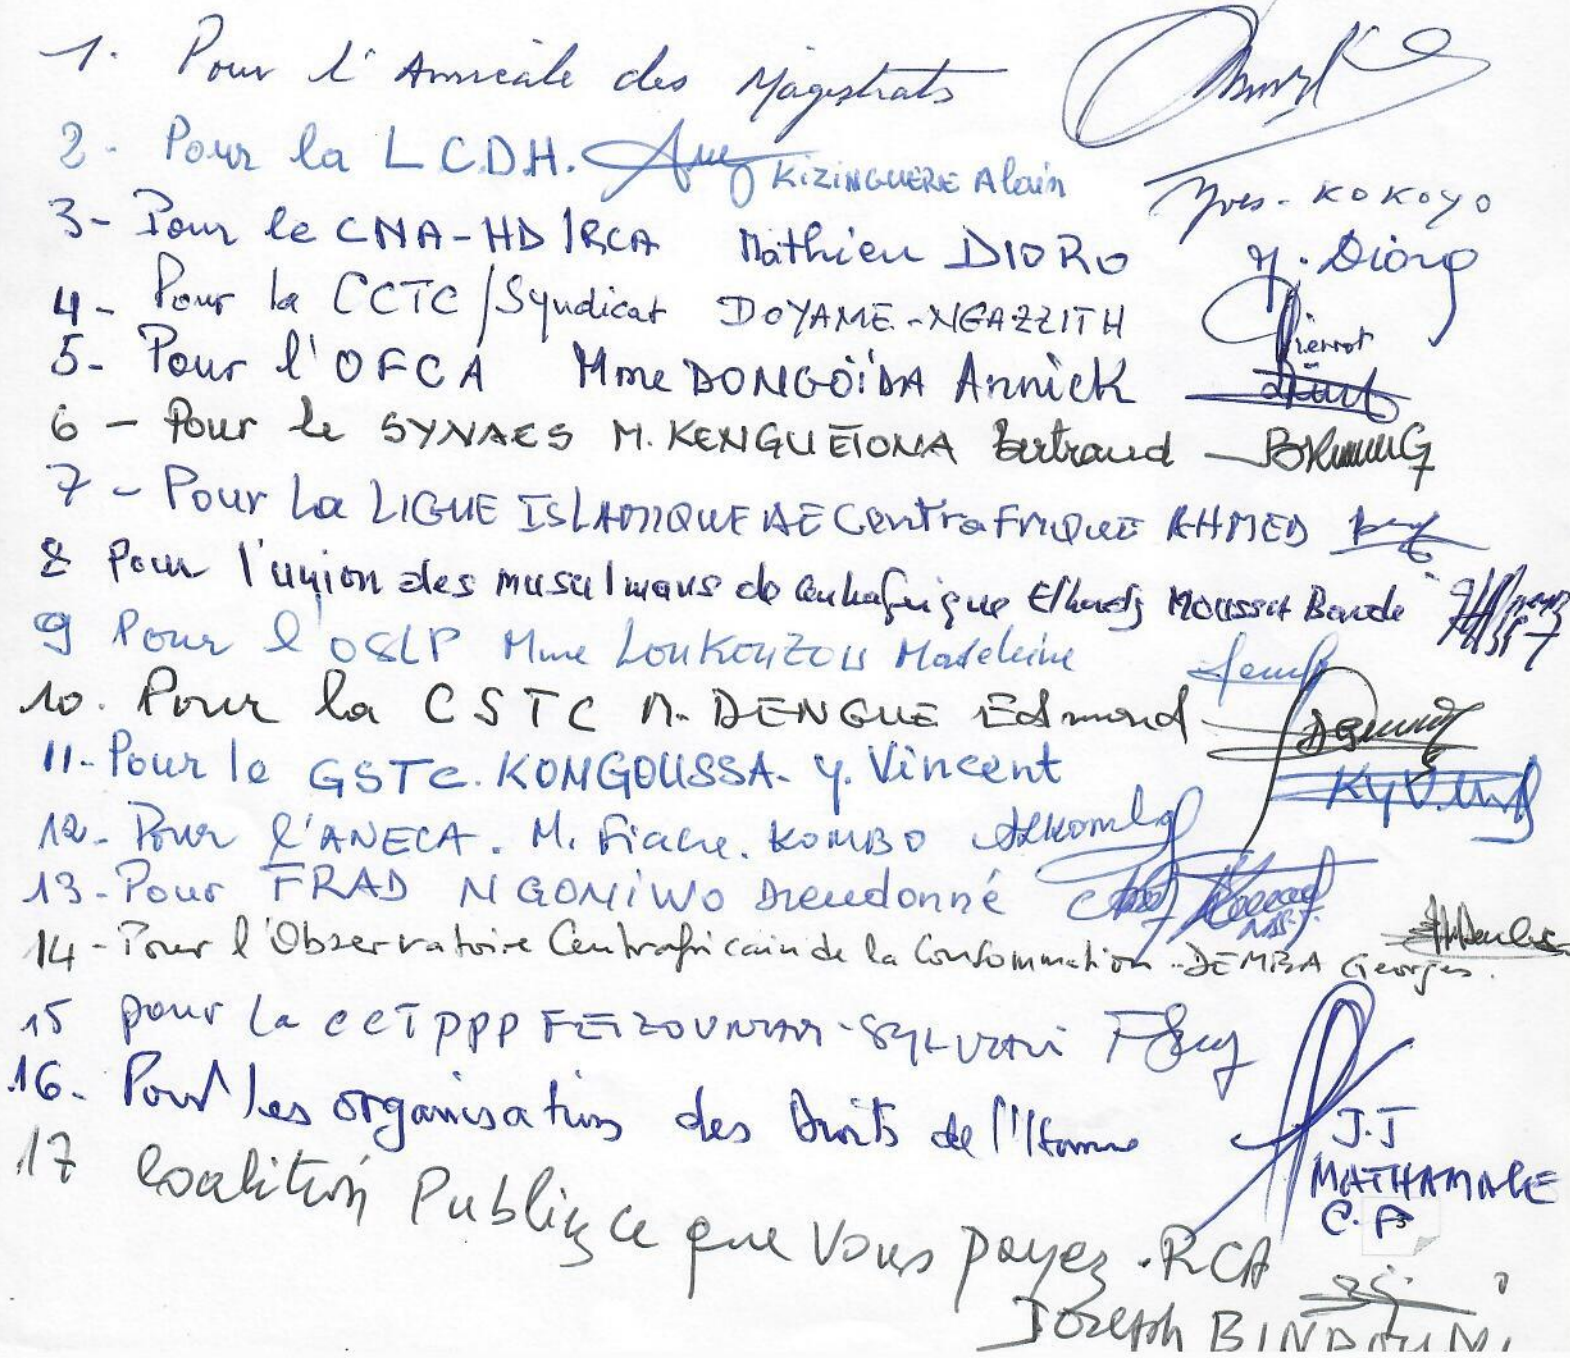 1. Pour l'Amicale des Magistrats
Yves-KOKOYO
2- Pour la LCDH. KIZINGUERE Alain
3- Pour le CNA-HD/RCA Mathieu DIORO
4- Pour la CCTC/Syndicat DOYAME-NGAZZITH Pierrot
5- Pour l'OFCA Mme DONGOÏDA Annick
6- Pour le SYNAES M. KENGUETONA Bertrand
7- Pour La LIGUE ISLAMIQUE DE CentraFrique AHMED
8 Pour l'union des musulmans de Centrafrique Elhadj Moussa Bawde
9 Pour l'OSLP Mme LOUKOUZOU Madeleine
10. Pour la CSTC M. DENGUE Edmond
11- Pour le GSTC. KONGOUSSA-Y. Vincent
12- Pour l'ANECA. M. Fiacre. KOMBO
13- Pour FRAD NGONIWO Dieudonné
14- Pour l'Observatoire Centrafricain de la Consommation - DEMBA Georges.
15 pour La CCTPPP
16. Pour les organisations des Droits de l'Homme
J.J
MATHAMALE
C.P
17 Coalition Publiez ce que Vous payez-RCA
Joseph BINDOUMI